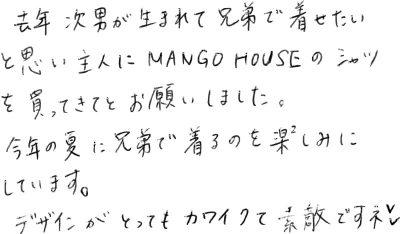 去年 次男が生まれて兄弟で着せたい
と思い主人にMANGO HOUSEのシャツ
を買ってきてとお願いしました。
今年の夏に兄弟で着るのを楽しみに
しています。
デザインがとってもカワイクて素敵ですネ♡